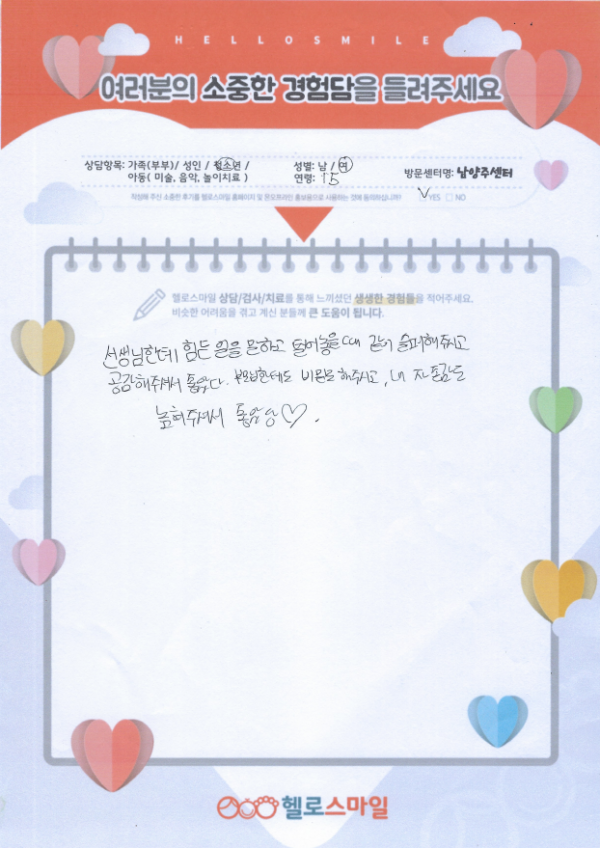 HELLOSMILE
여러분의 소중한 경험담을 들려주세요
상담항목: 가족(부부)/ 성인 / 청소년 /
아동( 미술, 음악, 놀이치료 )
성별: 남 / 여
연령: 15
방문센터명: 남양주센터
작성해 주신 소중한 후기를 헬로스마일 홈페이지 및 온오프라인 홍보용으로 사용하는 것에 동의하십니까? V YES □ NO
헬로스마일 상담/검사/치료를 통해 느끼셨던 생생한 경험들을 적어주세요.
비슷한 어려움을 겪고 계신 분들께 큰 도움이 됩니다.
선생님한테 힘든 일을 말하고 털어놓을때 같이 슬퍼해 주시고
공감해주셔서 좋았다. 부모님한테도 비밀로 해주시고, 내 자존감도
높혀주셔서 좋았당♡.
헬로스마일